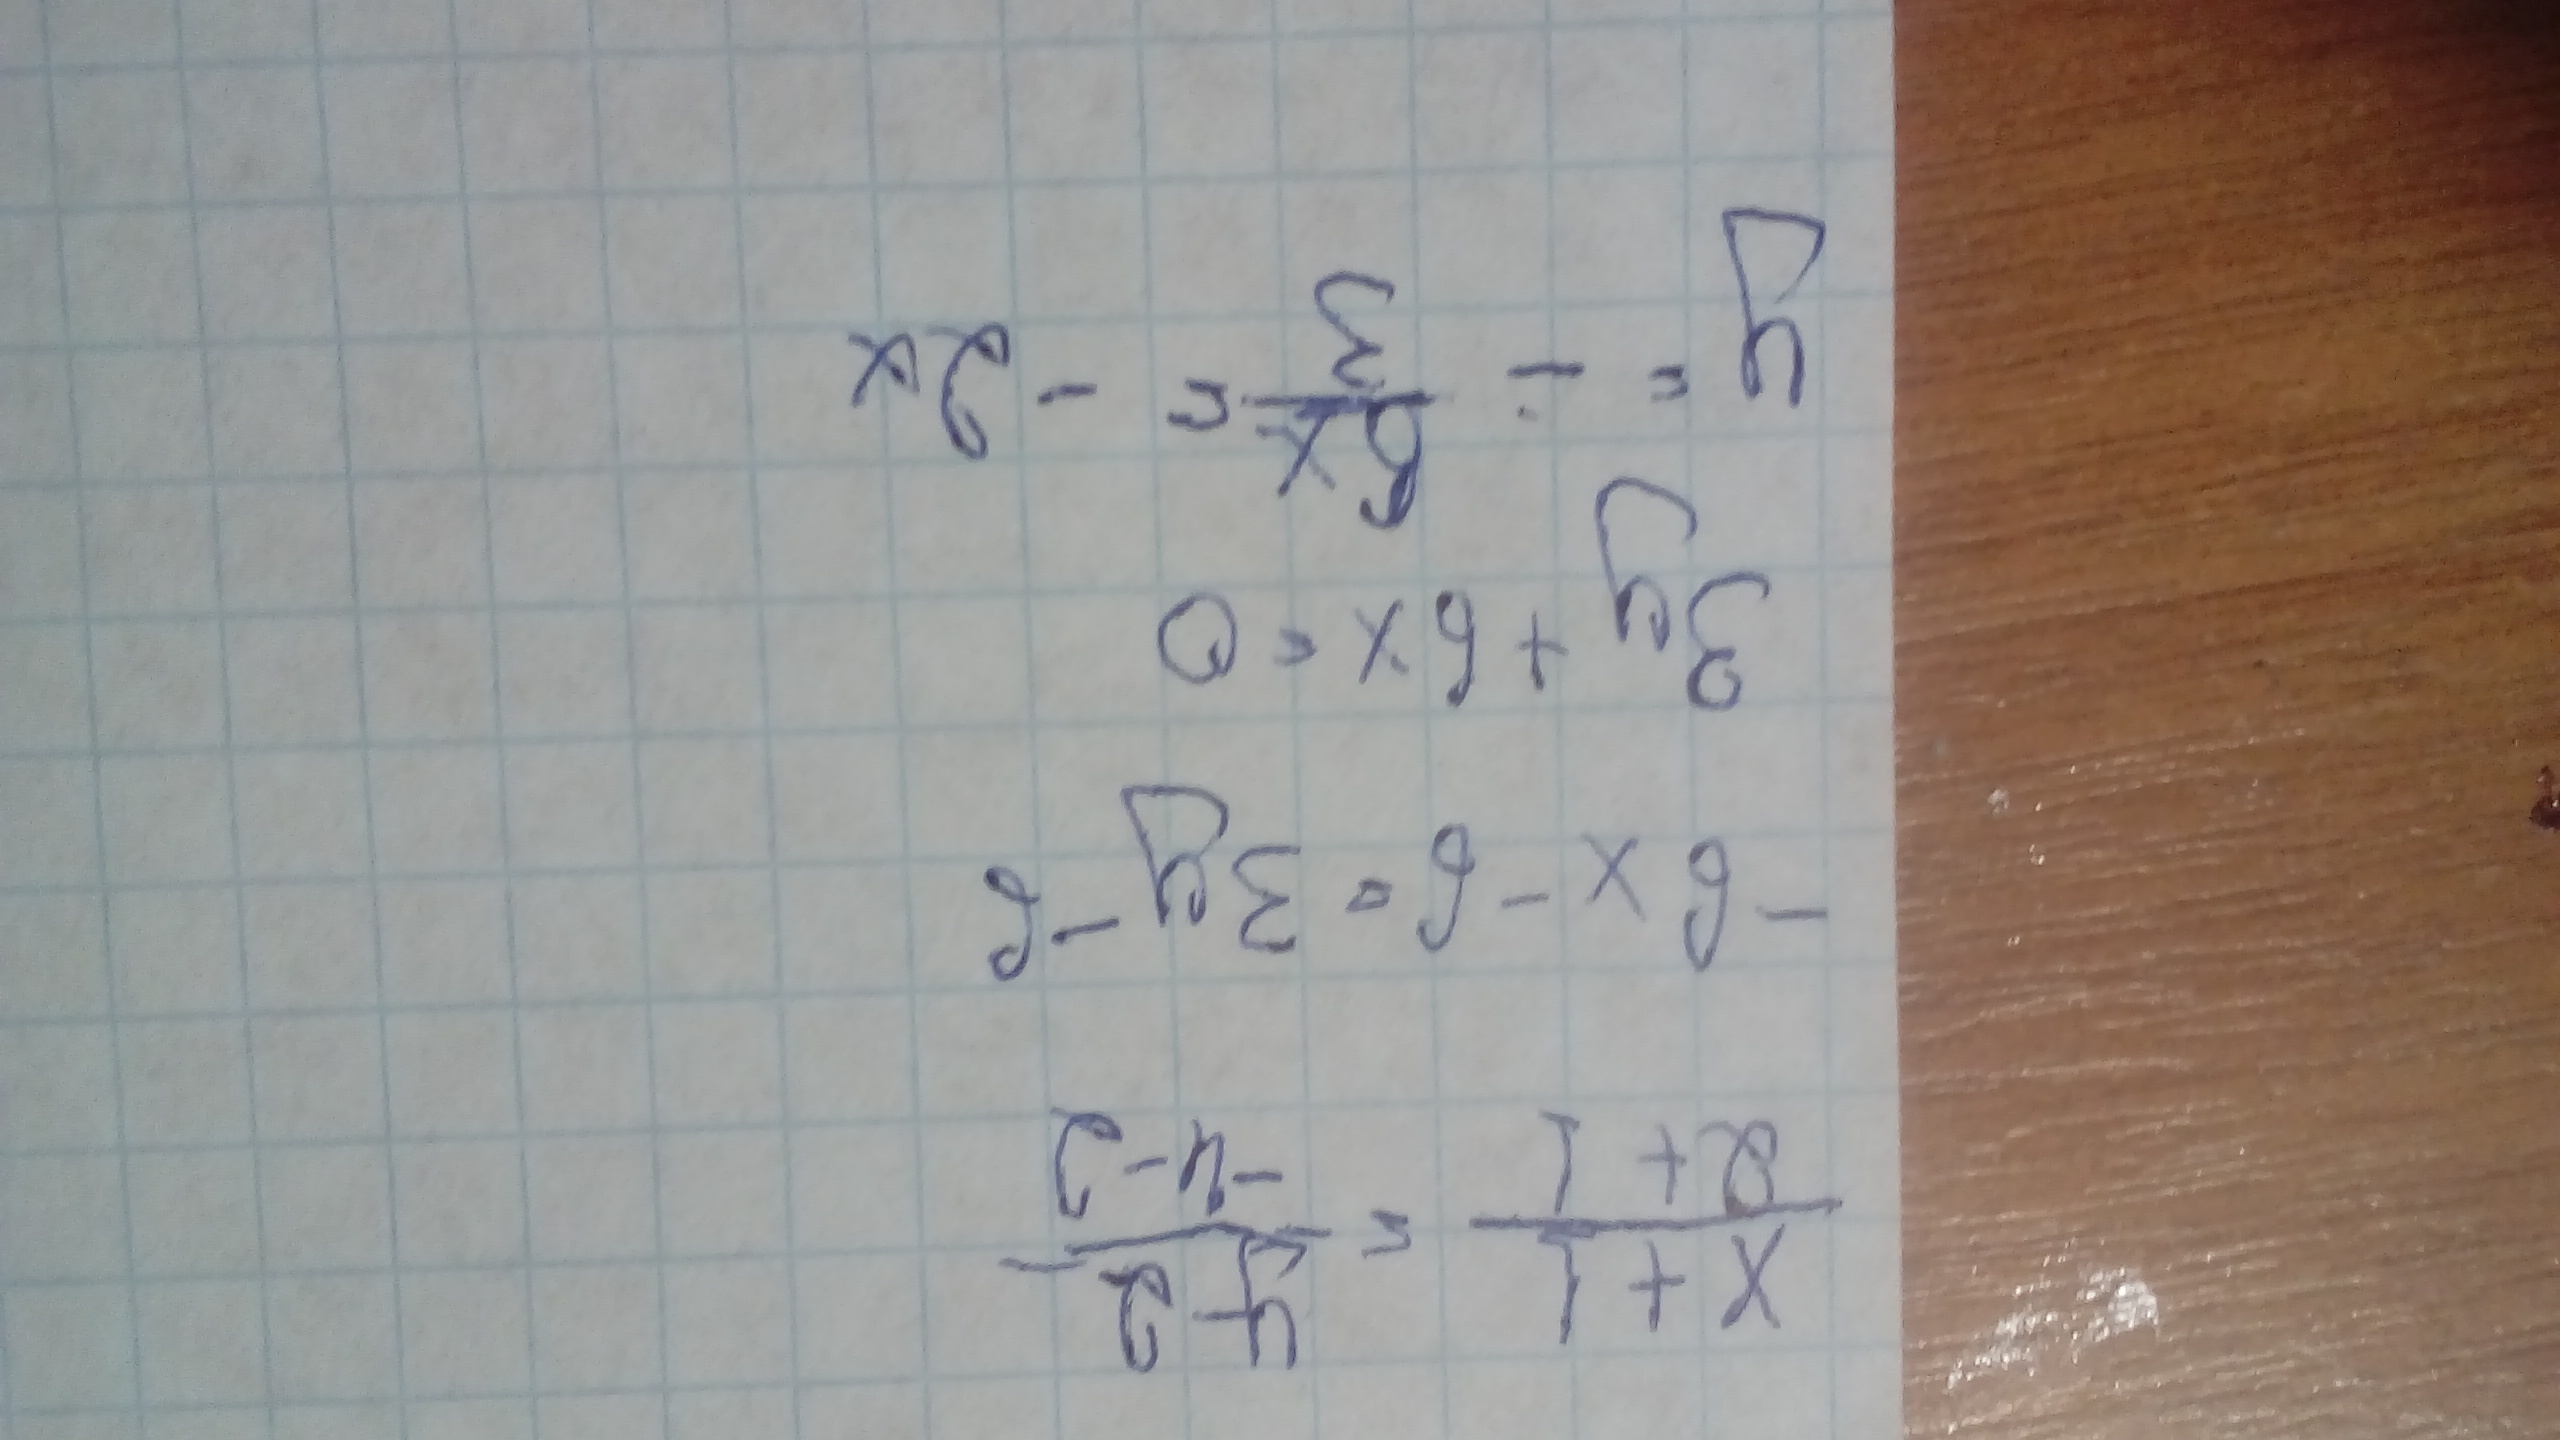 x+1/2+1 = y-2/-4-2
-6x-6=3y-6
3y+6x=0
y=-6x/3=-2x